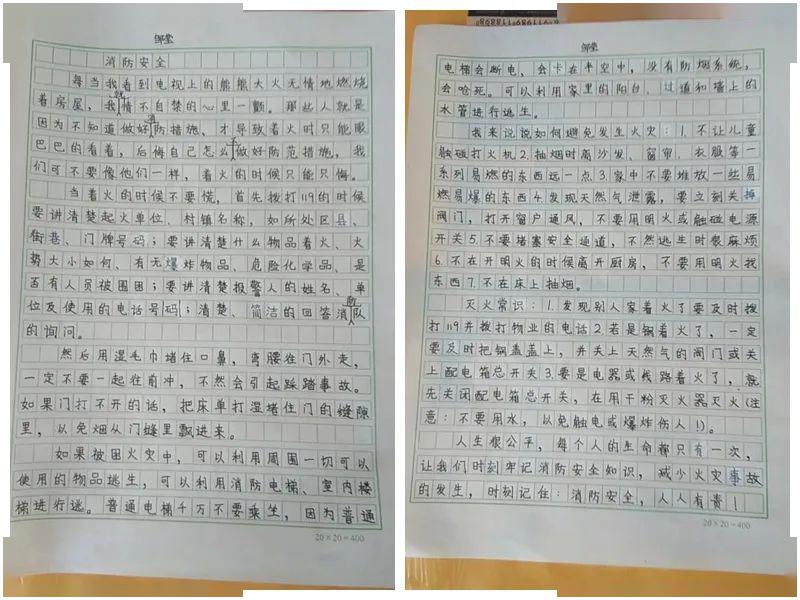 邹莹
消防安全
每当我看到电视上的熊熊大火无情地燃烧
着房屋，我就情不自禁的心里一颤。那些人就是
因为不知道做好消防措施，才导致着火时只能眼
巴巴的看着，后悔自己怎么不做好防范措施，我
们可不要像他们一样，着火的时候只能只悔。
当着火的时候不要慌，首先拨打119的时候
要讲清楚起火单位、村镇名称，如所处区县、
街巷、门牌号码；要讲清楚什么物品着火、火
势大小如何、有无爆炸物品、危险化学品、是
否有人员被围困；要讲清楚报警人的姓名、单
位及使用的电话号码；清楚、简洁的回答消防队
的询问。
然后用湿毛巾堵住口鼻，弯腰往门外走，
一定不要一起往前冲，不然会引起踩踏事故。
如果门打不开的话，把床单打湿堵住门的缝隙
里，以免烟从门缝里飘进来。
如果被困火灾中，可以利用周围一切可以
使用的物品逃生，可以利用消防电梯、室内楼
梯进行逃。普通电梯千万不要乘坐，因为普通
20×20=400
邹莹
电梯会断电，会卡在半空中，没有防烟系统，
会呛死。可以利用家里的阳台、过道和墙上的
水管进行逃生。
我来说说如何避免发生火灾：1.不让儿童
触碰打火机2.抽烟时离沙发、窗帘、衣服等一
系列易燃的东西远一点3.家中不要堆放一些易
燃易爆的东西4.发现天然气泄露，要立刻关掉
阀门，打开窗户通风，不要用明火或触碰电源
开关5.不要堵塞安全通道，不然逃生时很麻烦
6.不在开明火的时候离开厨房，不要用明火找
东西7.不在床上抽烟。
灭火常识：1.发现别人家着火了要及时拨
打119并拨打物业的电话2.若是锅着火了，一定
要及时把锅盖盖上，并关上天然气的阀门或关
上配电箱总开关3.要是电器或线路着火了，就
先关闭配电箱总开关，在用干粉灭火器灭火(注
意：不要用水，以免触电或爆炸伤人!)。
人生很公平，每个人的生命都只有一次，
让我们时刻牢记消防安全知识，减少火灾事故
的发生，时刻记住：消防安全，人人有责!
20×20=400